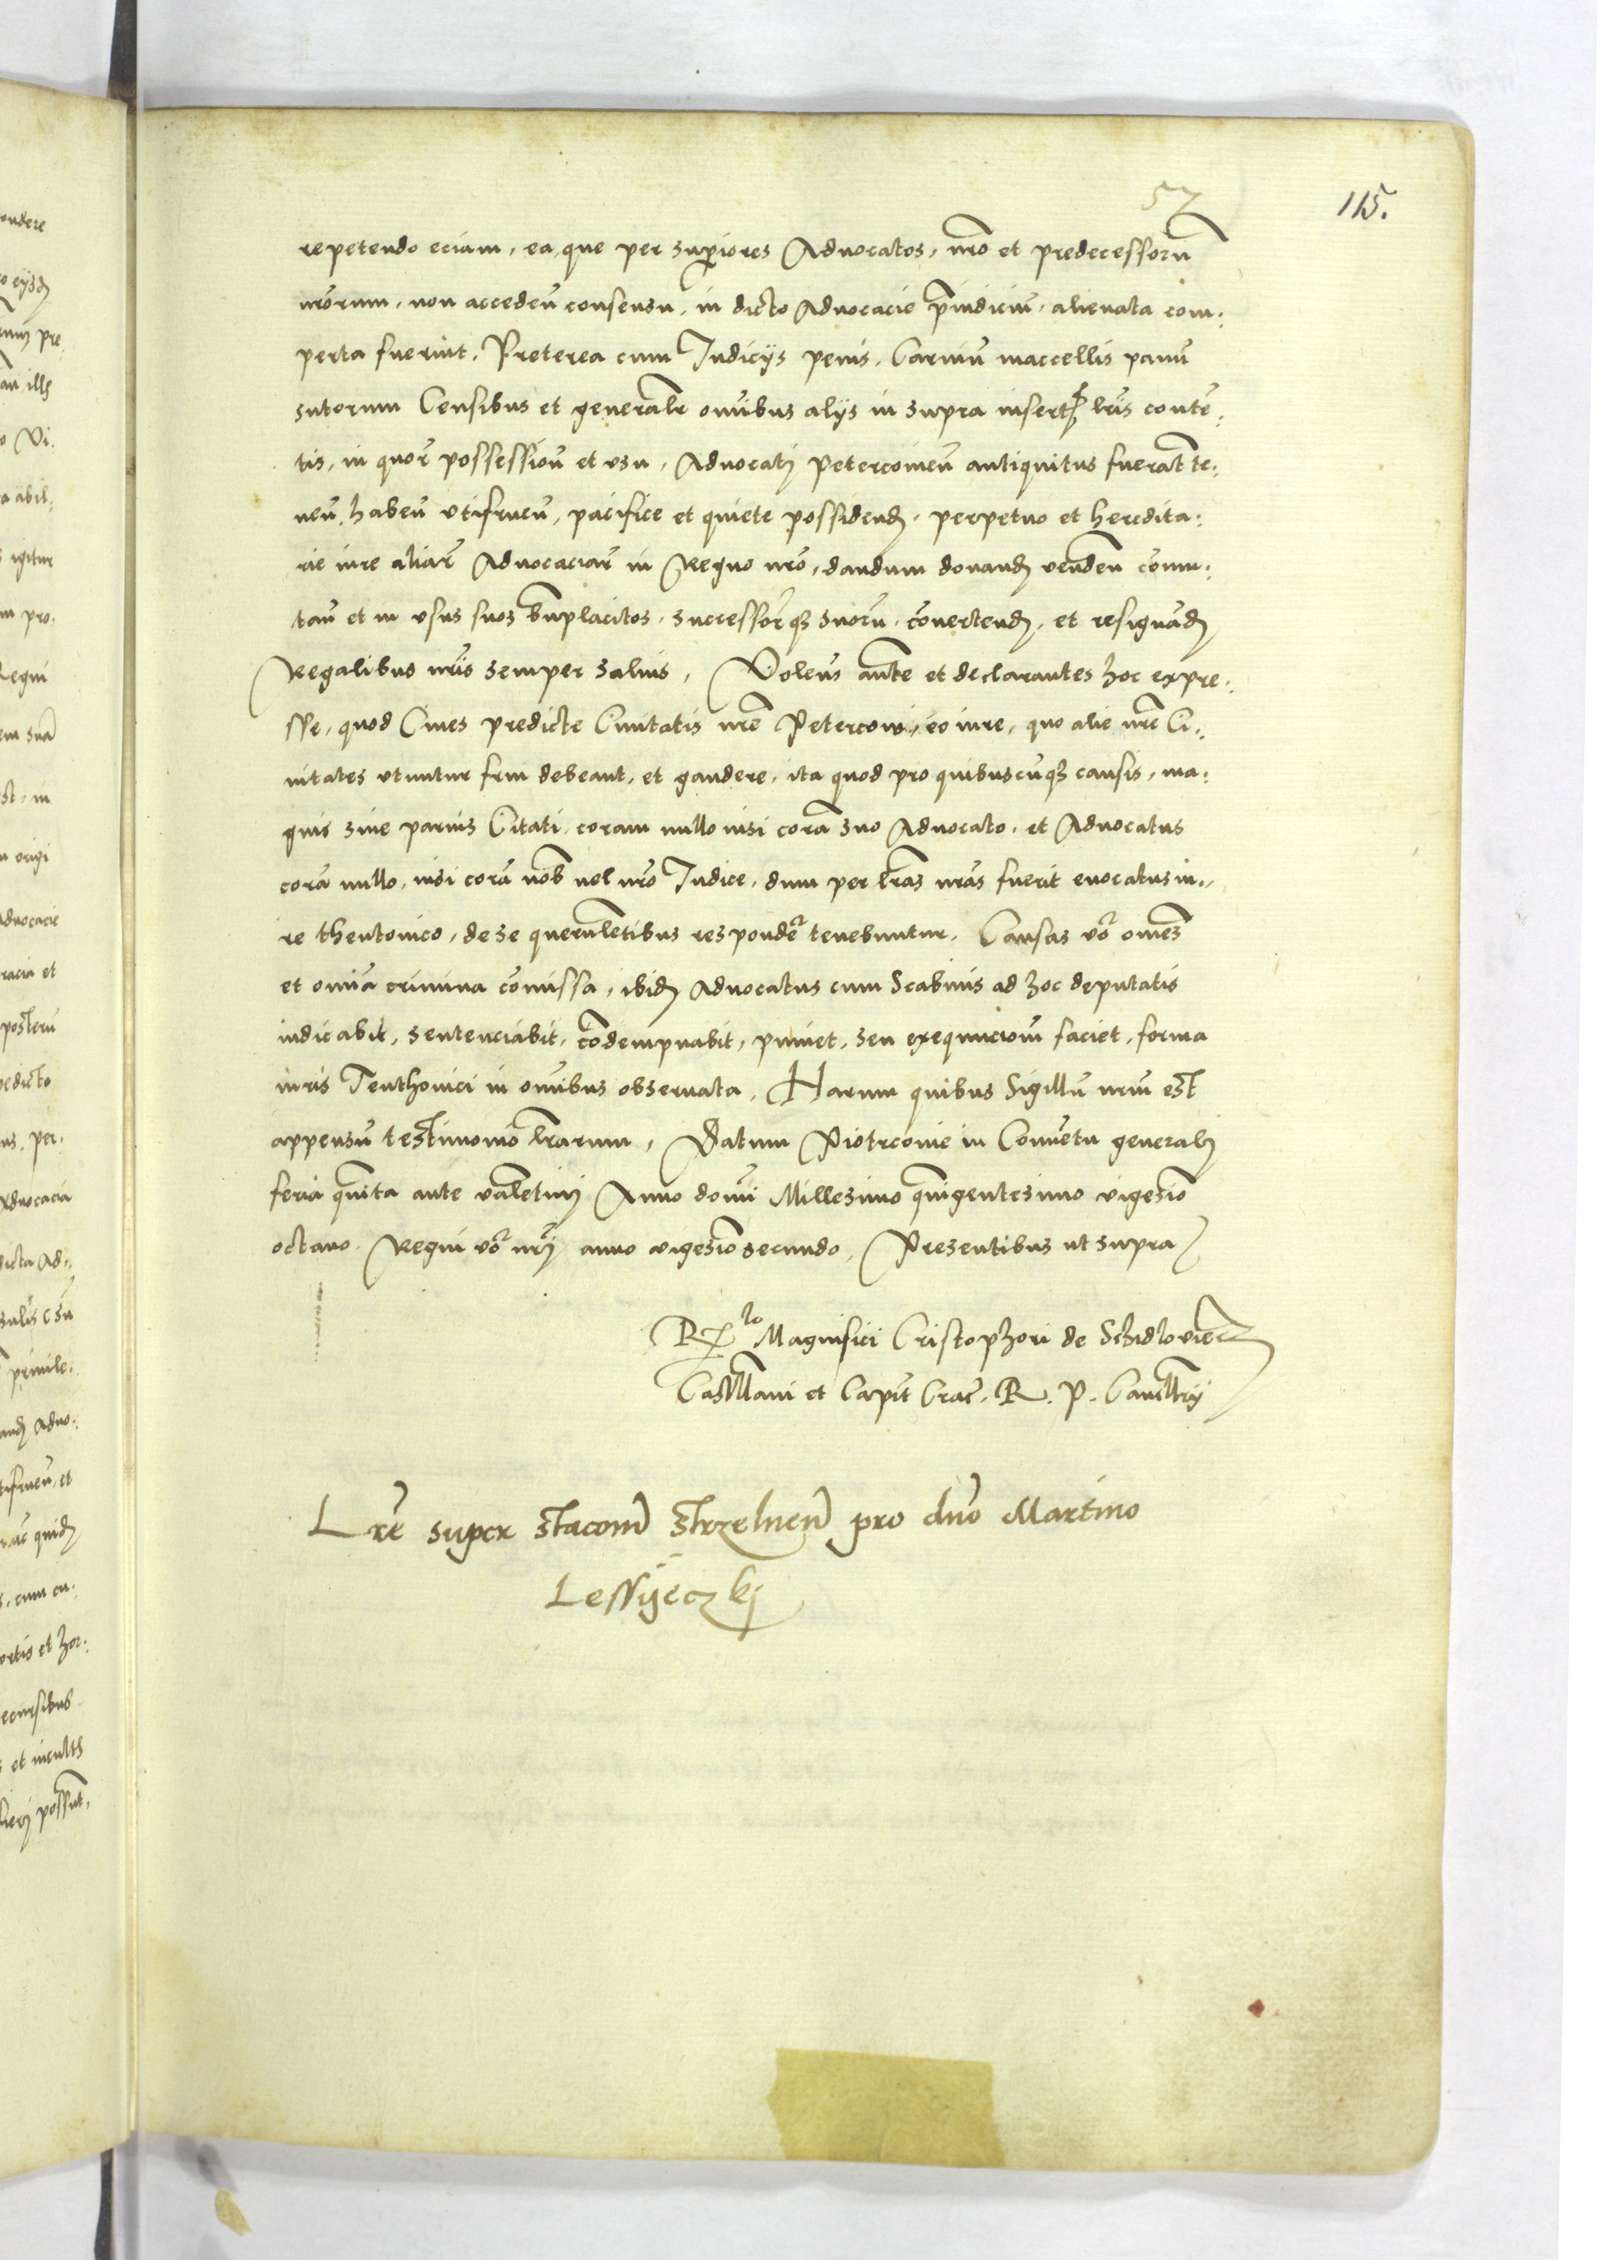 57
115.
repetendo eciam, ea, que per sup̱iores Advocatos, nr̃o et predecessorũ
nr̃orum, non acceden̄ consensu, in dicto Advocacie p̱iudiciũ, alienata com:
perta fuerint, Preterea cum Iudicijs penis, Carniũ maccellis panũ
sutorum Censibus et generalr̃ om̃ibus alijs in supra insert̃ lr̃is conten̄:
tis, in quor̃ possessioñ et usu, Advocatj Petercovieñ antiquitus fuerat̃ te:
neñ, habeñ utifrueñ, pacifice et quiete possidendȝ, perpetuo et heredita:
rie iure aliar̃ Advocaciar̃ in Regno nr̃o, dandum donandȝ vendeñ comu:
tañ et in usus suos bñplacitos, successor̃qȝ suorũ, cõvertendȝ, et resignãdȝ
Regalibus nr̃is semper salvis, Voleñs aũte et declarantes hoc expre:
sse, quod Cives predicte Civitatis nr̃e Petercovieñ, eo iure, quo alie nr̃e Ci:
vitates utuntur frui debeant, et gaudere, ita quod pro quibuscũqȝ causis, ma:
gnis sive parvis Citati, coram nullo nisi corã suo Advocato, et Advocatus
corã nullo, nisi corã nob̃ vel nr̃o Iudice, dum per lr̃as nr̃as fuerit evocatus iu:
re theutonico, de se querulẽtibus respondẽr tenebuntur. Causas vr̃o om̃es
et om̃ia crimina cõmissa, ibidȝ Advocatus cum Scabinis ad hoc deputatis
iudicabit, sentenciabit, cõdempnabit, puniet, seu exequucioñ faciet, forma
iuris Teuthonici in om̃ibus observata, Harum quibus Sigillũ nr̃um est
appensũ testimonio lr̃arum, Datum Piotrcovie in Conventu generalj
feria q̃uita ante valẽtinj Anno dom̃i Millesimo q̃uigentesimo vigesio
octavo. Regni vr̃o nr̃j anno vigesio secundo, Presentibus ut supra
R̃lo Magnifici Cristophori de Schidloviecz
Castellani et Capit̃ Crac̃. R. P. Cancellarij
Lr̃e super stacoñ strzelneñ pro dño Martino
Lessijeczkj